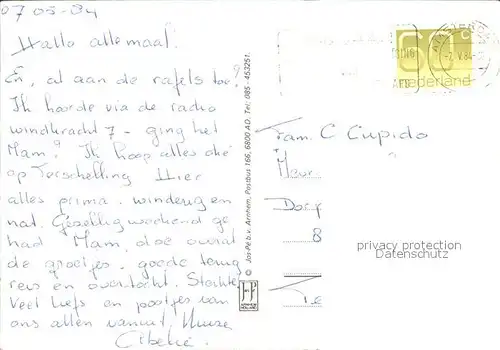 07 05-84
Hallo allemaal.
En, al aan de rafels toe?
Ik hoorde via de radio
windkracht 7 - ging het
Mam? Ik hoop alles oké
op Terschelling Hier
alles prima. winderig en
nat. Gezellig weekend ge
had Mam, doe overal
de groetjes. goede terug
reis en overtocht. Sterkte
Veel liefs en pootjes van
ons allen vanuit
© Jos-Pé b.v. Arnhem, Postbus 166, 6800 AD. Tel: 085 - 453251.
ARNHEM
HOLLAND
60 c
nederland
AMSTERDAM
-7.V.84
Fam. C Cupido
Meur
Dorp
8
Te
privacy protection
Datenschutz